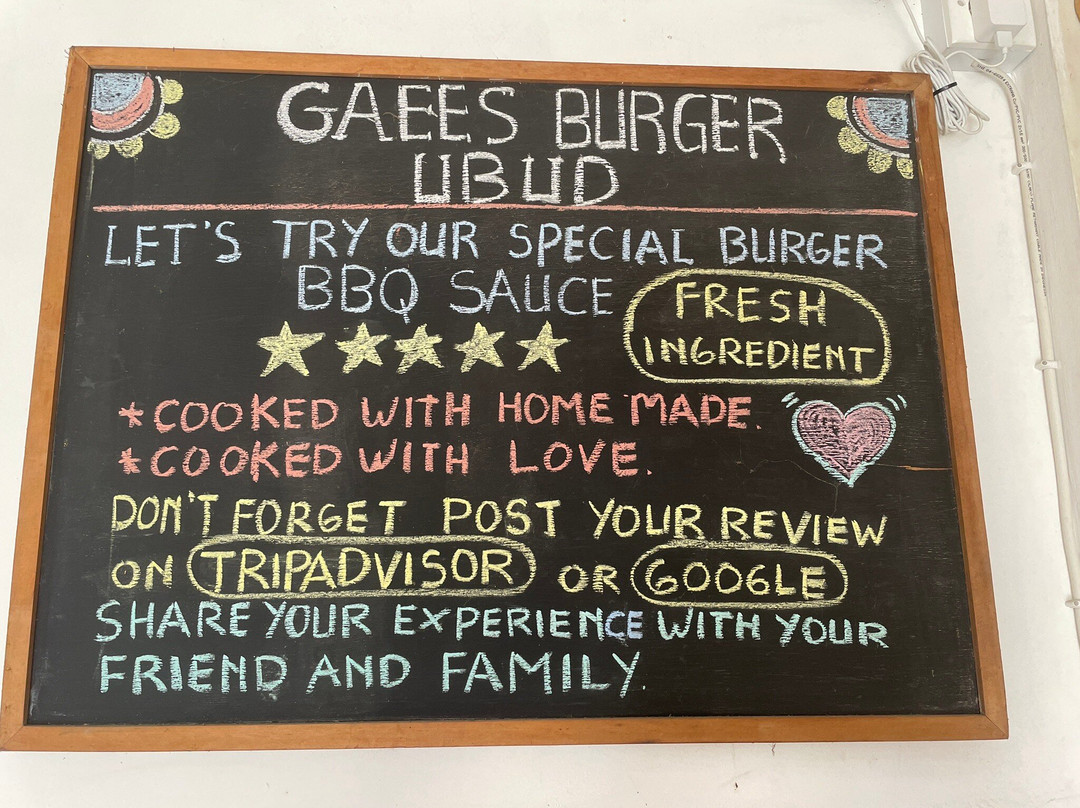 GAEES BURGER
UBUD
LET'S TRY OUR SPECIAL BURGER
BBQ SAUCE
FRESH
INGREDIENT
*COOKED WITH HOME MADE.
*COOKED WITH LOVE.
DON'T FORGET POST YOUR REVIEW
ON TRIPADVISOR OR GOOGLE
SHARE YOUR EXPERIENCE WITH YOUR
FRIEND AND FAMILY.